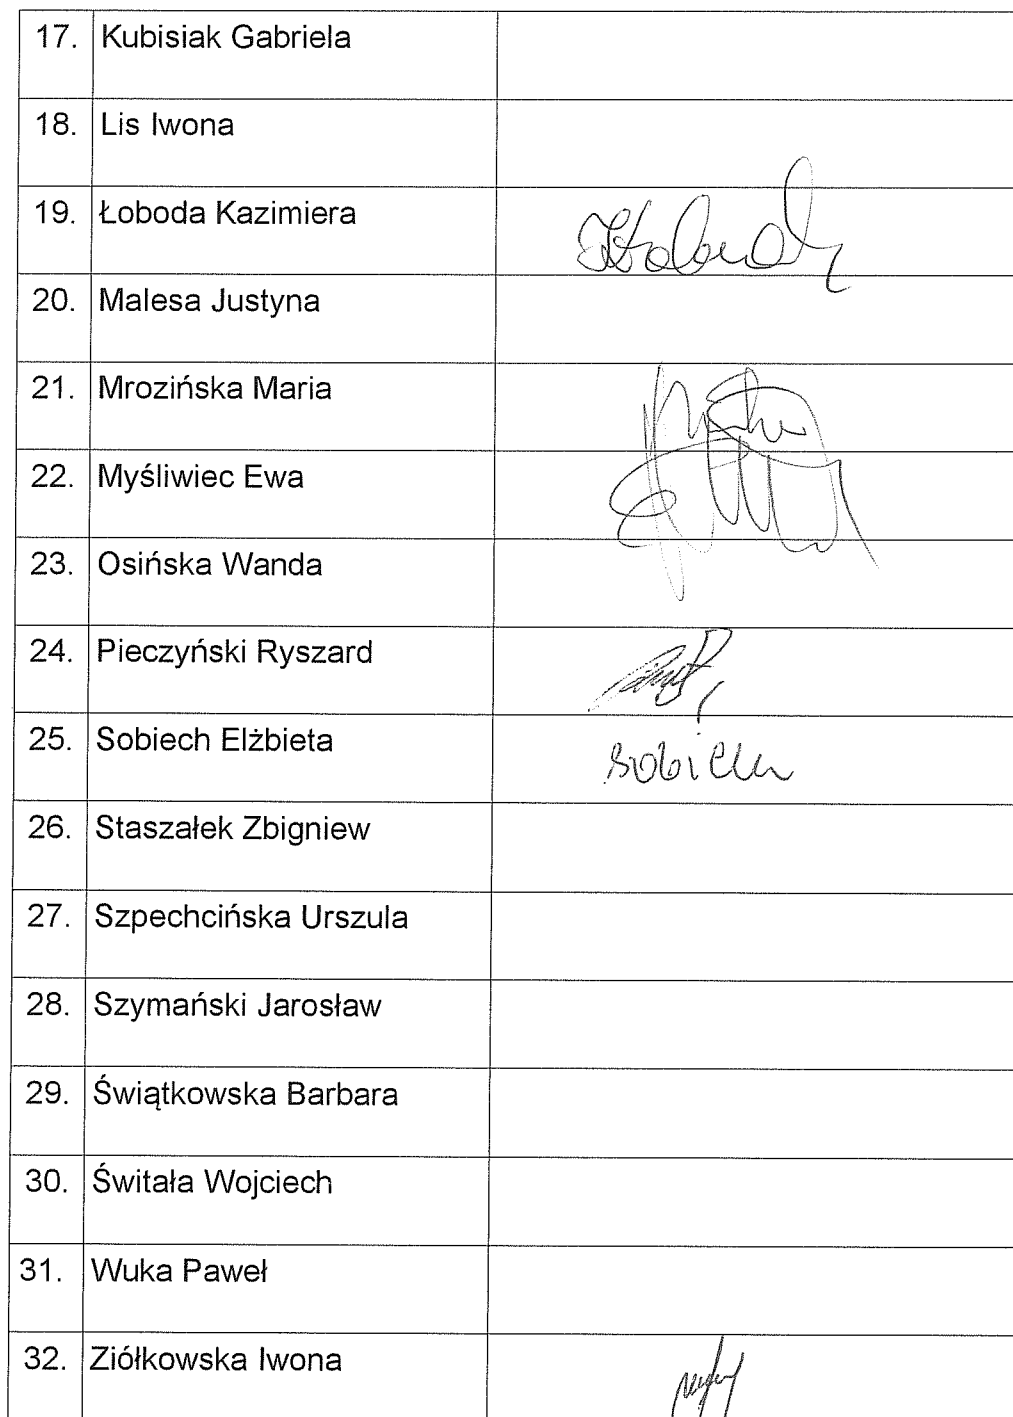 17. Kubisiak Gabriela
18. Lis Iwona
19. Łoboda Kazimiera
20. Malesa Justyna
21. Mrozińska Maria
22. Myśliwiec Ewa
23. Osińska Wanda
24. Pieczyński Ryszard
25. Sobiech Elżbieta Sobiech
26. Staszałek Zbigniew
27. Szpechcińska Urszula
28. Szymański Jarosław
29. Świątkowska Barbara
30. Świtała Wojciech
31. Wuka Paweł
32. Ziółkowska Iwona